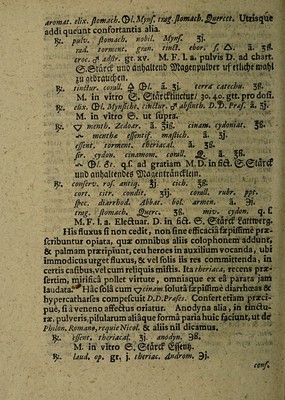 aromat. elix. stomach. Ol. Myns. tinct. stomach. Querret. Utrisque
addi queunt confortantia alia.
℞. pulv. stomach. nobil. Myns. ʒj.
rad. torment. gran. tinct. ebor. s. △. ā. ʒß.
croc. ♂ adstr. gr. xv. M. F. l. a. pulvis D. ad chart.
S. Stärck und anhaltend Magenpulver uf etliche mahl
zu gebrauchen.
℞. tinctur. corall. Ol. ā. ʒj. terra catechu. ʒß.
M. in vitro S. Stärcktinctur/ 30. 40. gtt. pro dosi.
℞. elix. Ol. Mynsicht. tinctur. absinth. D.D. Præs. ā. ʒj.
M. in vitro S. ut supra.
℞. menth. Zedoar. ā. ℥iß. cinam. cydoniat. ℥ß.
menthæ essentif. mastich. ā. ʒj.
essent. torment. theriacal. ā. ʒß.
sir. cydon. cinamom. corall. ā. ℥ß.
Ol. Gr. q.s. ad gratiam M. D. in fict. S. Stärck
und anhaltendes Magenträncklein.
℞. conserv. ros. antiq. ℥j. cich. ℥ß.
cort. citr. condit. ʒij. corall. rubr. ppt.
spec. diarrhod. Abbat. bol. armen. ā. ℈j.
tinct. stomach. Querc. ʒß. miv. cydon. q. s.
M. F. l. a. Electuar. D. in fict. S. Stärck Lattwerg.
His fluxus si non cedit, non sine efficacia sæpissimè præ-
scribuntur opiata, quæ omnibus aliis colophonem addunt,
& palmam præripiunt, ceu heroes in auxilium vocanda, ubi
immodicus urget fluxus, & vel solis iis res committenda, in
certis casibus, vel cum reliquis mistis. Ita theriaca, recens præ-
sertim, mirificâ pollet virtute, omniaque ex eâ parata jam
laudata. Hâc solâ cum ęrinaw soluta sæpissimè diarrhœas &
hypercatharses compescuit D.D. Præses. Confert etiam præci-
puè, si à veneno affectus oriatur. Anodyna alia, in tinctu-
ræ, pulveris, pilularum aliâque formâ paria huic faciunt, ut de
Philon. Romano, requie Nicol. & aliis nil dicamus.
℞. essent. theriacal. ʒj. anodyn. ℈ß.
M. in vitro S. Stärck Essentz.
℞. laud. op. gr. j. theriac. Androm. ℈j.
conf.